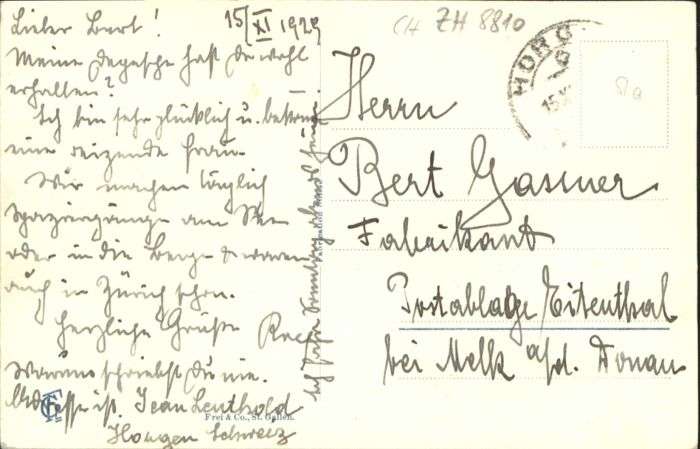 15/XI 1929
CH ZH 8810
HORG
Lieber Bert!
Meine Depesche hast du wohl
erhalten?
Ich bin sehr glücklich u. bekomme
eine reizende Frau.
Wir machen täglich
Spaziergänge am See
oder in die Berge & waren
auch in Zürich schon.
Herzliche Grüße
Warum schriebst Du nie.
Adresse ist. Jean Leuthold
Horgen Schweiz
Ich fahre Sonntag abends heim
Herrn
Bert Gassner
Fabrikant
Postablage Eitenthal
bei Melk a/d. Donau
Frei & Co., St. Gallen.